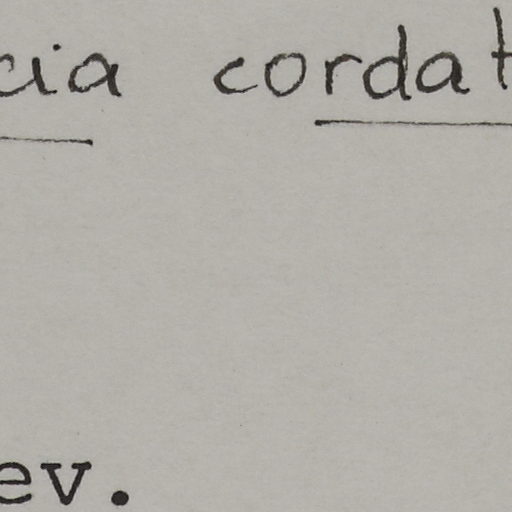 cia cordat
ev.